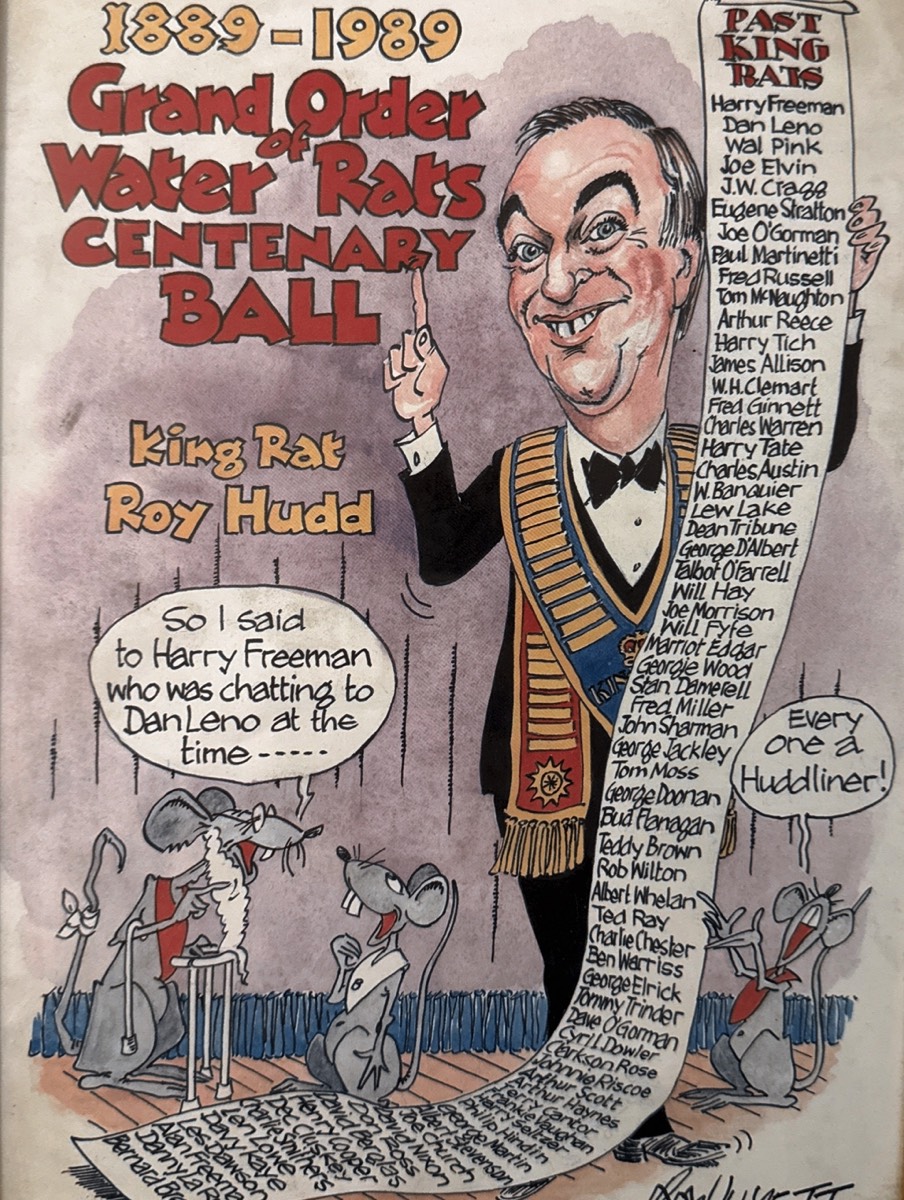 1889-1989
Grand Order
of
Water Rats
CENTENARY
BALL
King Rat
Roy Hudd
So I said
to Harry Freeman
who was chatting to
Dan Leno at the
time -----
Every
one a
Huddliner!
KIN
8
PAST
KING
RATS
Harry Freeman
Dan Leno
Wal Pink
Joe Elvin
J.W. Cragg
Eugene Stratton
Joe O'Gorman
Paul Martinetti
Fred Russell
Tom McNaughton
Arthur Reece
Harry Tich
James Allison
W.H. Clemart
Fred Ginnett
Charles Warren
Harry Tate
Charles Austin
W. Banquier
Lew Lake
Dean Tribune
George D'Albert
Talbot O'Farrell
Will Hay
Joe Morrison
Will Fyfe
Marriot Edgar
Georgie Wood
Stan Damerell
Fred Miller
John Sharman
George Jackley
Tom Moss
George Doonan
Bud Flanagan
Teddy Brown
Rob Wilton
Albert Whelan
Ted Ray
Charlie Chester
Ben Warriss
George Elrick
Tommy Trinder
Dave O'Gorman
Cyril Dowler
Clarkson Rose
Johnnie Riscoe
Arthur Scott
Arthur Haynes
Terry Cantor
Frankie Vaughan
Harry Seltzer
Philip Hindin
George Martin
Albert Stevenson
Joe Church
David Nixon
Donald Ross
David Berglas
Henry Cooper
Cluskey
Charlie Smithers
Len Lowe
Davy Kaye
Les Dawson
Alan Freeman
Danny La R
Bernard Br